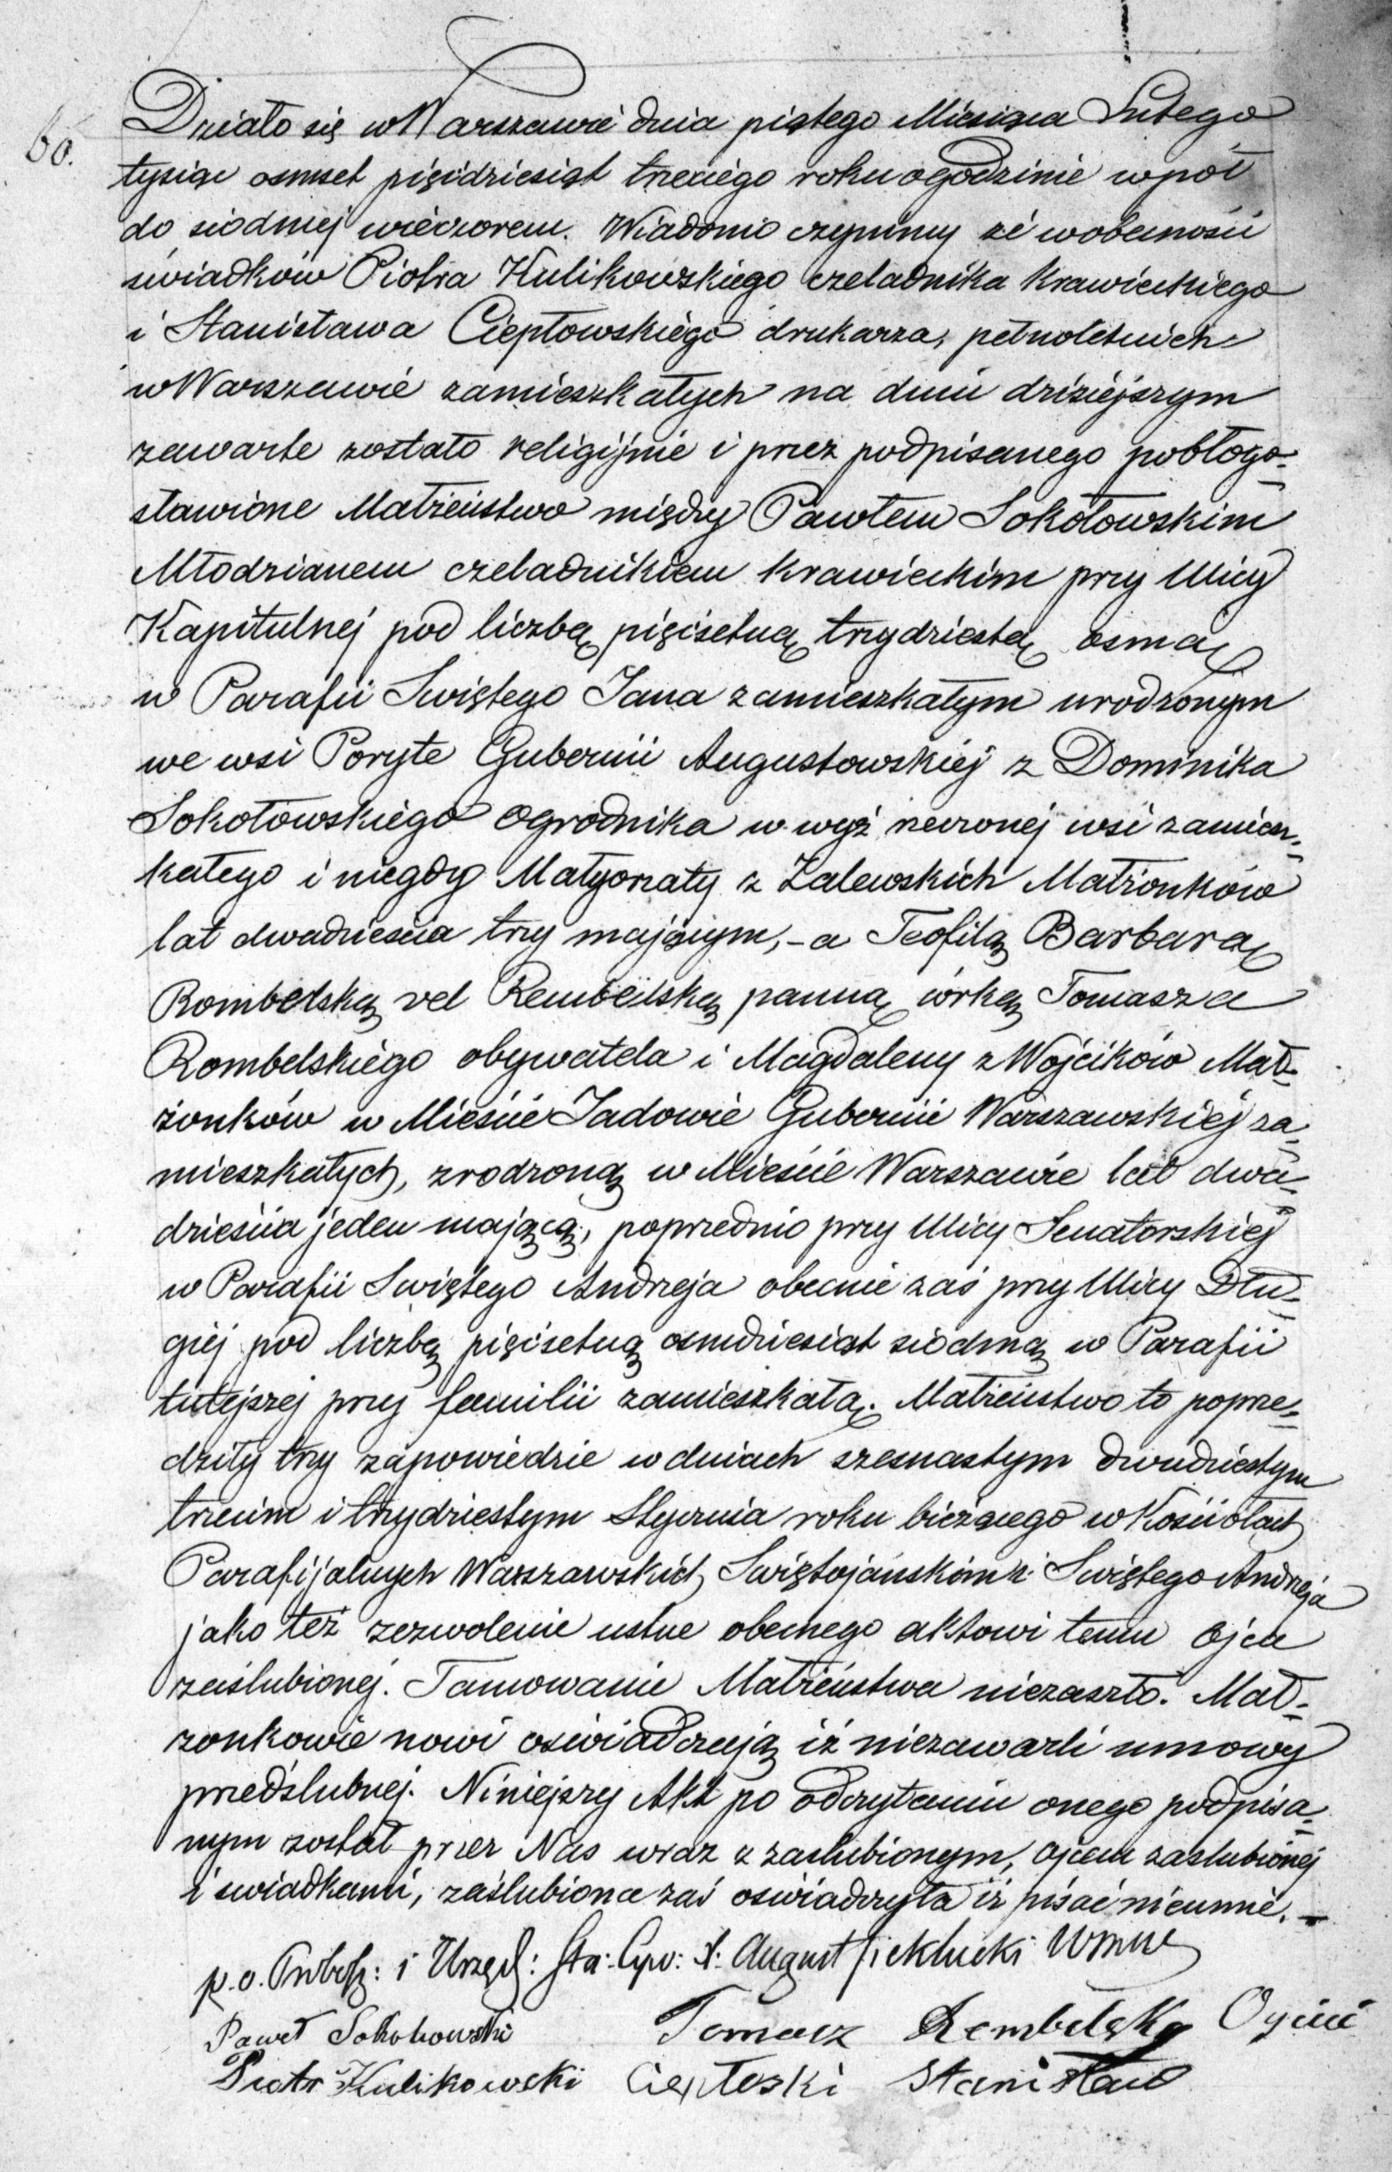 60.
Działo się w Warszawie dnia piątego Miesiąca Lutego
tysiąc osmset pięćdziesiąt trzeciego roku o godzinie wpół
do siodmej wieczorem. Wiadomo czynimy że w obecności
świadków Piotra Kulikowskiego czeladnika Krawieckiego
i Stanisława Ciepłowskiego drukarza, pełnoletnich
w Warszawie zamieszkałych na dniu dzisiejszym
zawarte zostało religijnie i przez podpisanego pobłogo-
sławione Małżeństwo między Pawłem Sokołowskim
Młodzianem czeladnikiem krawieckim przy Ulicy
Kapitulnej pod liczbą pięćsetną trzydziestą osmą
w Parafii Swiętego Jana zamieszkałym urodzonym
we wsi Poryte Gubernii Augustowskiej z Dominika
Sokołowskiego Ogrodnika w wyż rzeczonej wsi zamiesz-
kałego i niegdy Małgorzaty z Zalewskich Małżonków
lat dwadzieścia trzy mającym, - a Teofilą Barbarą
Rombelską vel Rembelską panną córką Tomasza
Rombelskiego obywatela i Magdaleny z Wójcików Mał-
żonków w Mieście Jadowie Gubernii Warszawskiej za-
mieszkałych, zrodzoną w Mieście Warszawie lat dwa-
dzieścia jeden mającą, poprzednio przy Ulicy Senatorskiej
w Parafii Swiętego Andrzeja obecnie zaś przy Ulicy Dłu-
giej pod liczbą pięćsetną osmdziesiąt siodmą w Parafii
tutejszej przy familii zamieszkałą. Małżeństwo to poprze-
dziły trzy zapowiedzie w dniach szesnastym dwudziestym
trzecim i trzydziestym Stycznia roku bieżącego w Kościołach
Parafijalnych Warszawskich Swiętojańskim i Swiętego Andrzeja
jako też zezwolenie ustne obecnego aktowi temu Ojca
zaślubionej. Tamowanie Małżeństwa niezaszło. Mał-
żonkowie nowi oświadczają iż niezawarli umowy
przedślubnej. Niniejszy Akt po odczytaniu onego podpisa-
nym został przez Nas wraz z zaślubionym, Ojcem zaslubionej
i swiadkami, zaślubiona zaś oświadczyła iż pisać nieumie. -
p.o. Probosz: i Urzęd: Sta: Cyw: X: August
Paweł Sokołowski Tomasz Rembelski Oyciec
Piotr Kulikowski Ciepłoski Stanisław